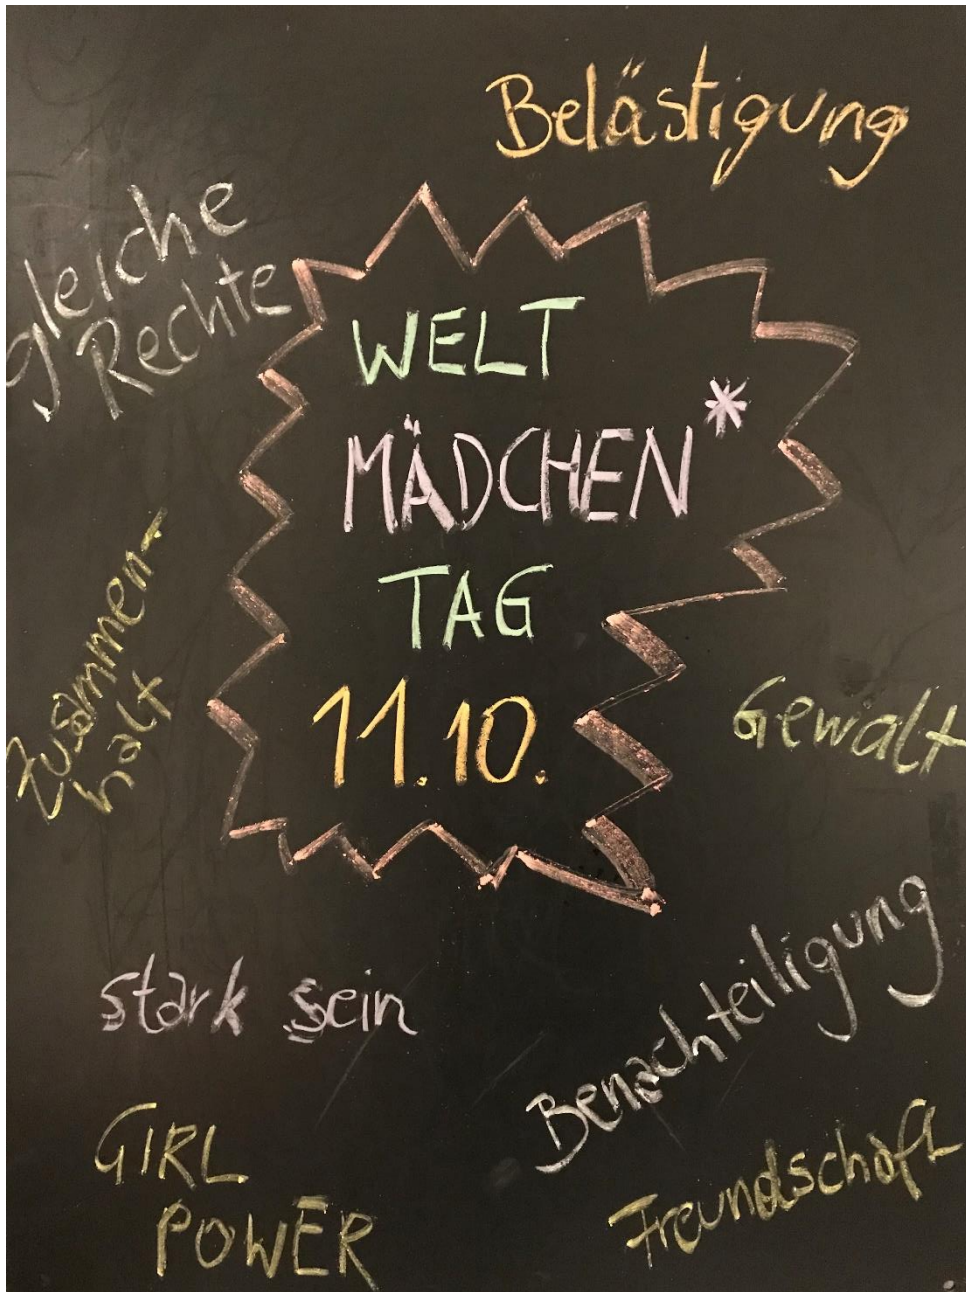 Belästigung
gleiche
Rechte
WELT
MÄDCHEN*
TAG
11.10.
Zusammen-
halt
Gewalt
stark sein
Benachteiligung
GIRL
POWER
Freundschaft